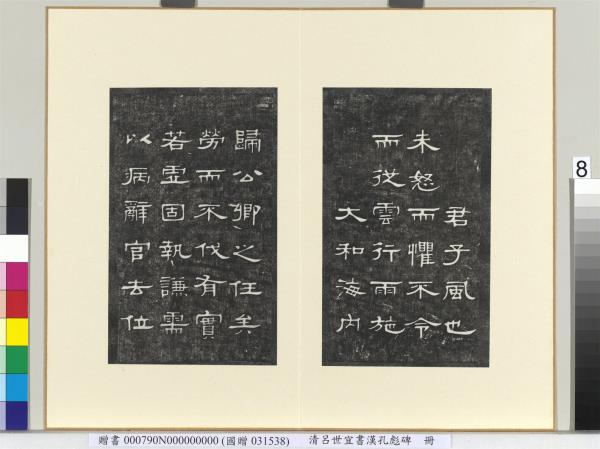 君子風也
未怒而懼不令
而從雲行雨施
大和海內
歸公卿之任矣
勞而不伐有實
若虛固執謙需
以病辭官去位
8
贈書 000790N000000000 (國贈 031538) 清呂世宜書漢孔彪碑 冊